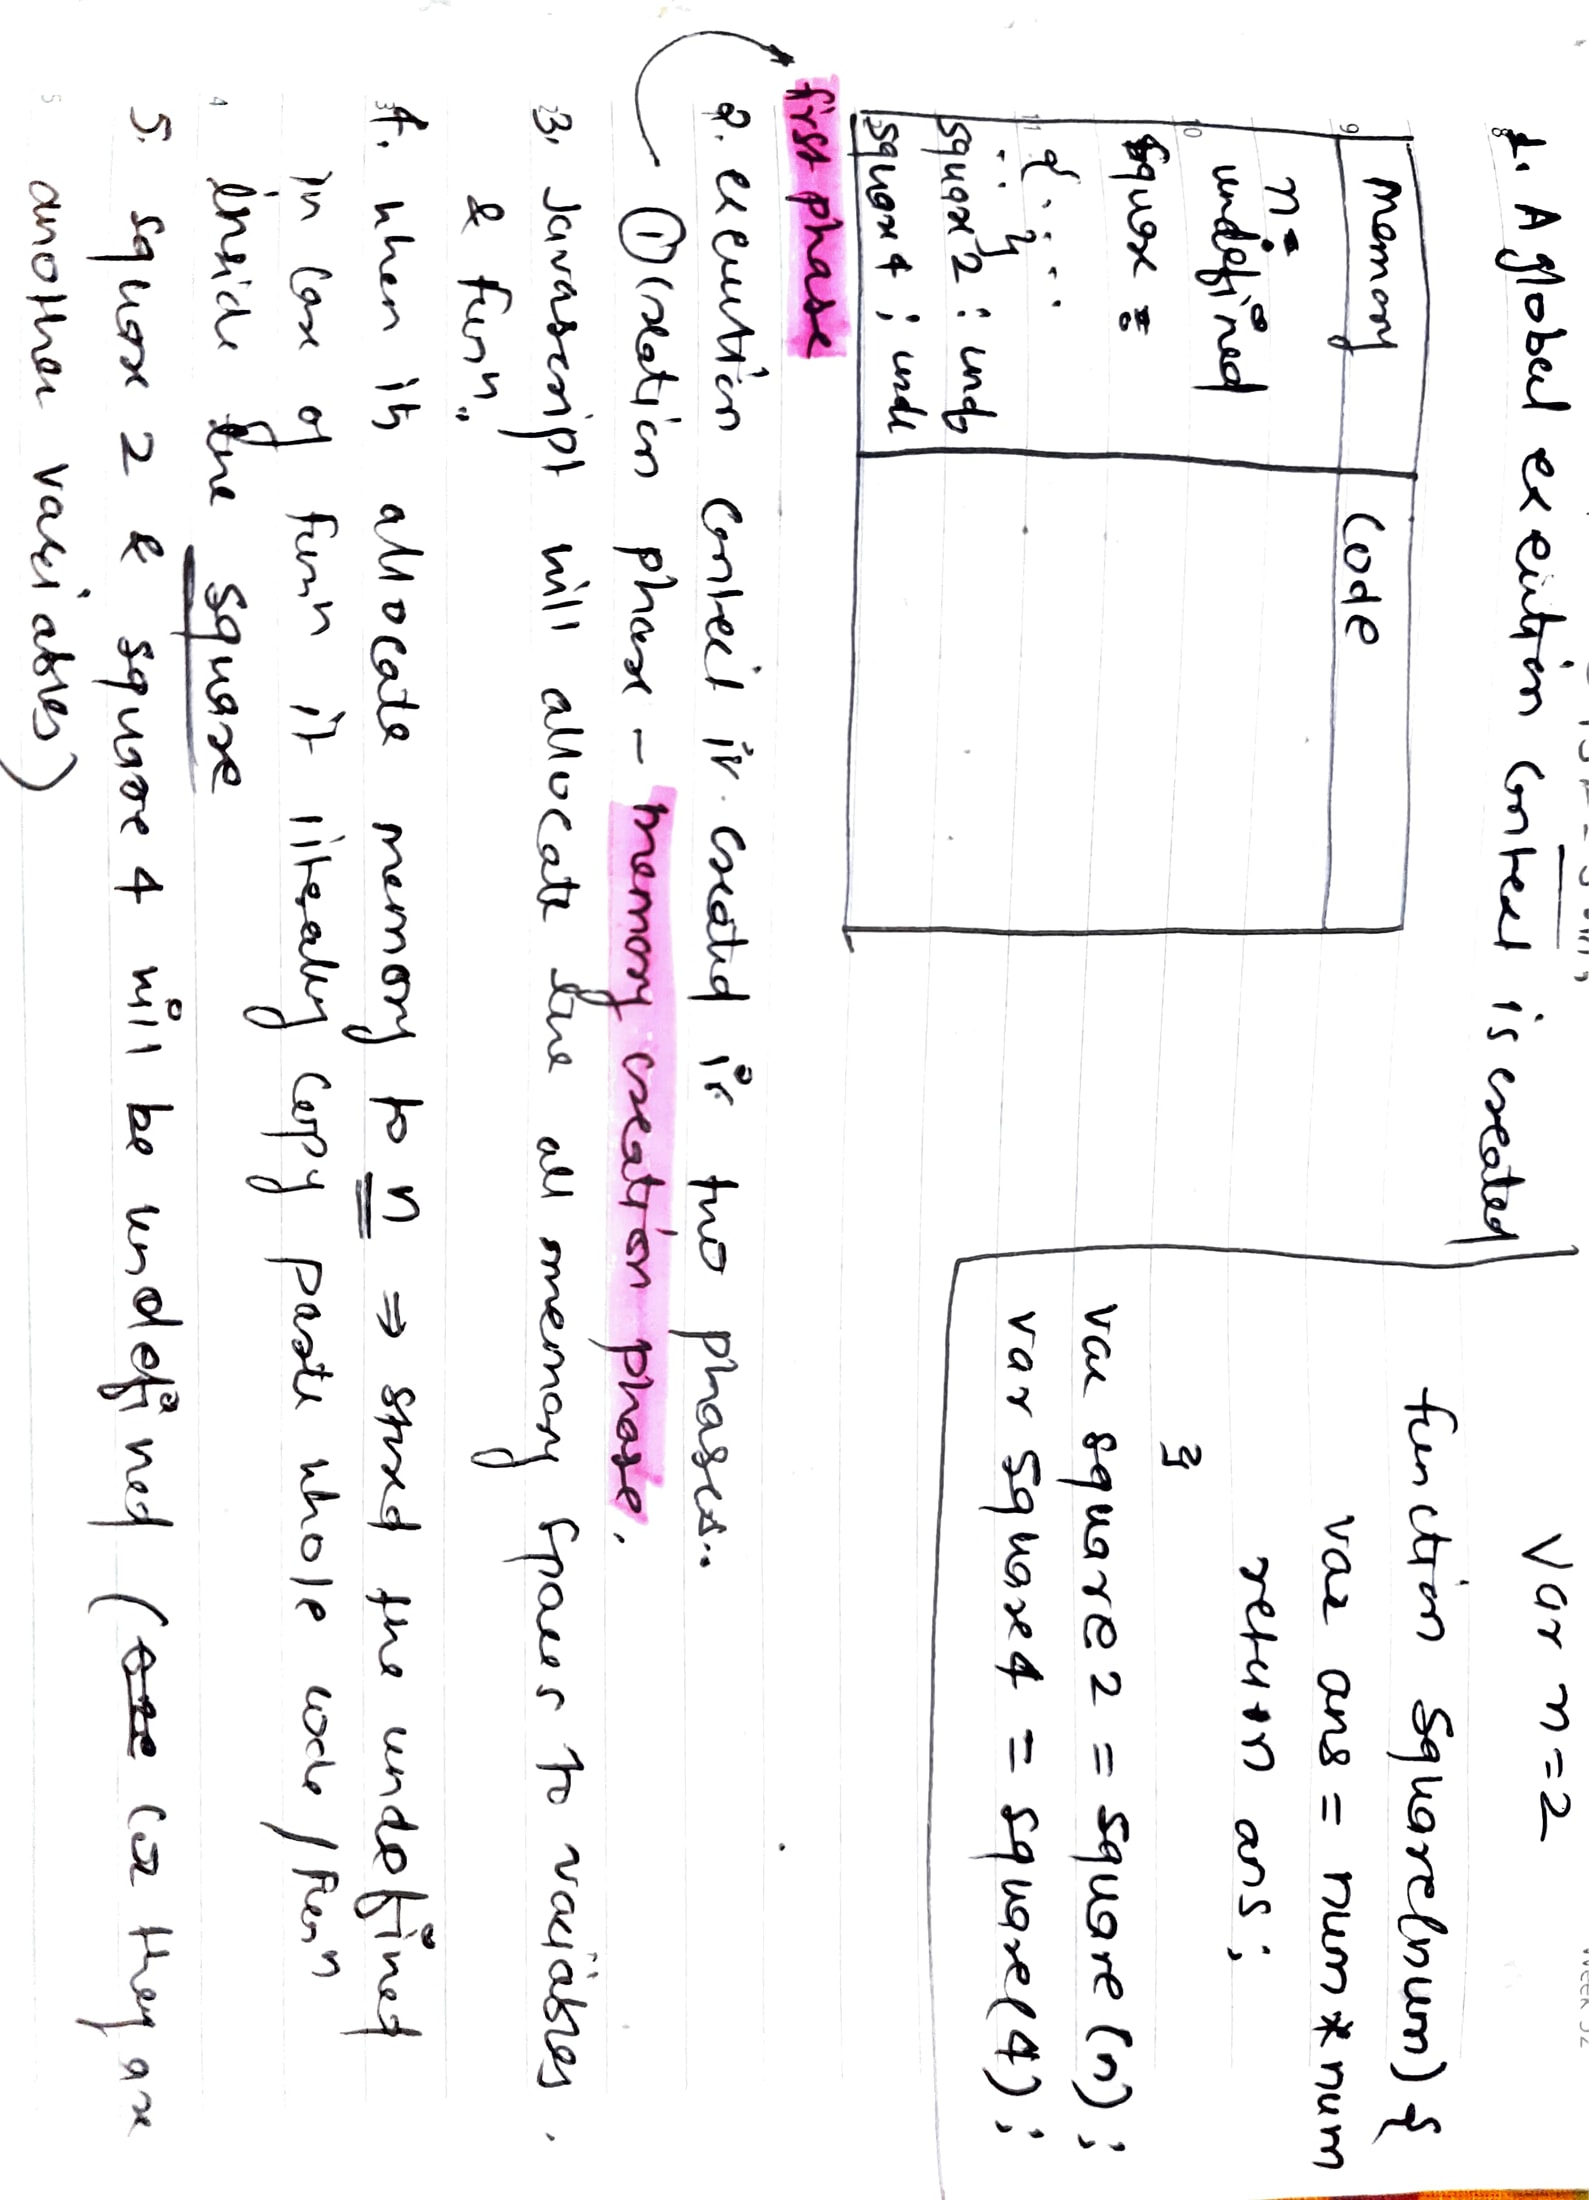 1. A global exeution context is created
Memory
Code
n:
undefined
square :
{ . . . .
. . }
square 2 : unde
square 4 ; unde
Var n=2
function square(num) {
var ans = num * num
return ans ;
}
var square 2 = square (n) ;
var square 4 = square(4) ;
first phase
2. execution context is created in two phases..
① Creation phase - memory creation phase.
3. Javascript will allocate the all memory spaces to variables.
& funⁿ.
4. when it allocate memory to n ⇒ stored the undefined
in case of funⁿ it literally copy paste whole code / funⁿ
inside the square
5. square 2 & square 4 will be undefined ( coz they are
another variables)